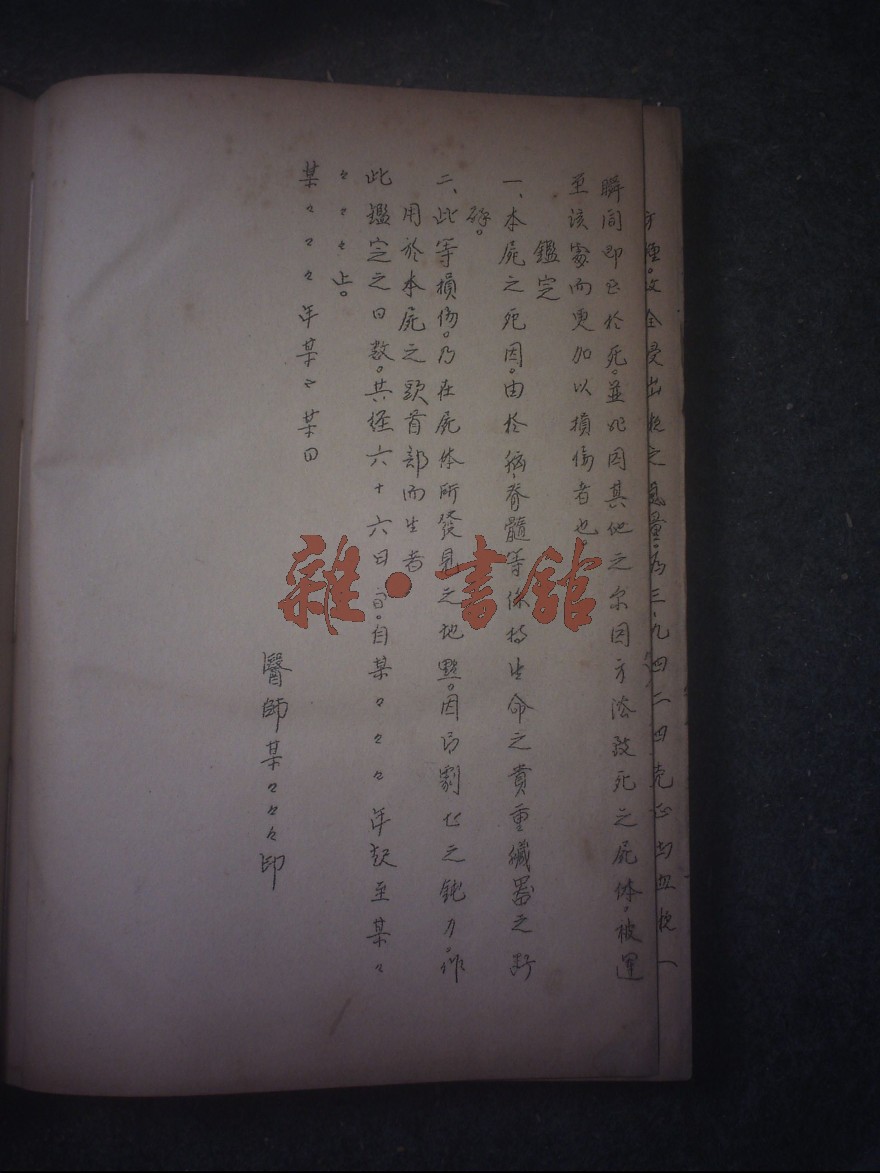 瞬间即至於死。並非因其他之原因方法致死之屍体。被運
至該家而更加以損傷者也
鑑定
一、本屍之死因。由於脊髓等保持生命之貴重臟器之断
碎。
二、此等損傷。乃在屍体所發見之地點。因劇之鈍力。作
用於本屍之頭首部而生者
此鑑定之日数。共経六十六日。自某々々々年起至某々
々々々止。
某々々々年某々某日
醫師某々々々印
全受出之量。為三、九四二四
雜·書館